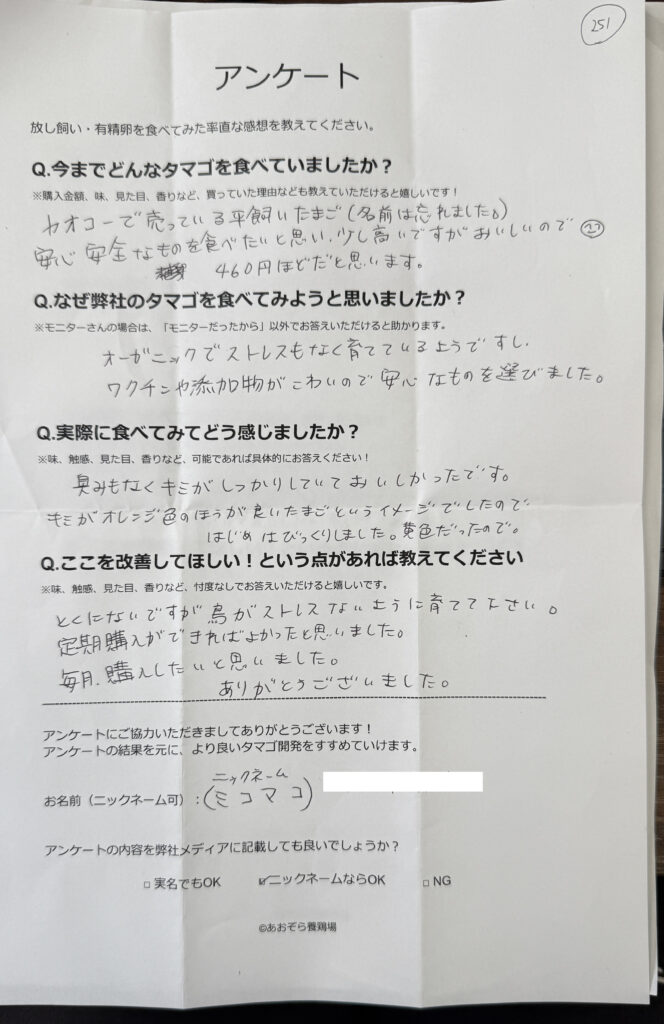 251
アンケート
放し飼い・有精卵を食べてみた率直な感想を教えてください。
Q.今までどんなタマゴを食べていましたか？
※購入金額、味、見た目、香りなど、買っていた理由なども教えていただけると嬉しいです！
ヤオコーで売っている平飼いたまご(名前は忘れました。)
安心安全なものを食べたいと思い、少し高いですがおいしいので
460円ほどだと思います。
Q.なぜ弊社のタマゴを食べてみようと思いましたか？
※モニターさんの場合は、「モニターだったから」以外でお答えいただけると助かります。
オーガニックでストレスもなく育てているようですし、
ワクチンや添加物がこわいので安心なものを選びました。
Q.実際に食べてみてどう感じましたか？
※味、触感、見た目、香りなど、可能であれば具体的にお答えください！
臭みもなくキミがしっかりしていておいしかったです。
キミがオレンジ色のほうが良いたまごというイメージでしたので
はじめはびっくりしました。黄色だったので。
Q.ここを改善してほしい！という点があれば教えてください
※味、触感、見た目、香りなど、忖度なしでお答えいただけると嬉しいです。
とくにないですが鳥がストレスないように育てて下さい。
定期購入ができればよかったと思いました。
毎月、購入したいと思いました。
ありがとうございました。
アンケートにご協力いただきましてありがとうございます！
アンケートの結果を元に、より良いタマゴ開発をすすめていけます。
ニックネーム
お名前（ニックネーム可）：(ミコマコ)
アンケートの内容を弊社メディアに記載しても良いでしょうか？
□ 実名でもOK ☑ニックネームならOK □ NG
©あおぞら養鶏場